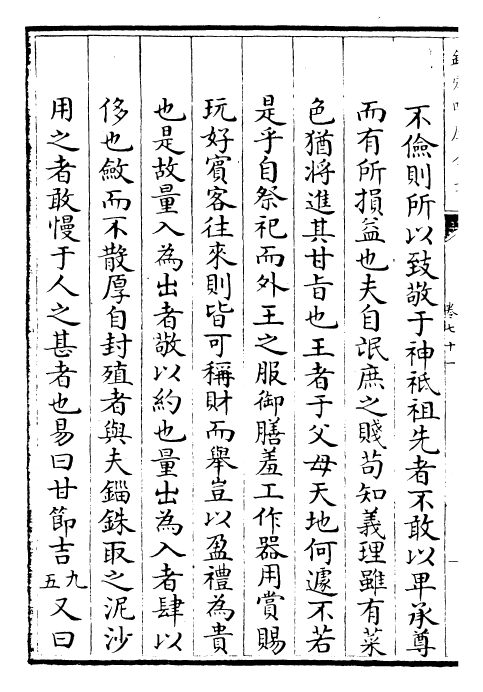 不儉則所以致敬于神祗祖先者不敢以卑承尊
而有所損益也夫自氓庶之賤茍知義理雖有菜
色猶将進其甘旨也王者于父母天地何遽不若
是乎自祭祀而外王之服御膳羞工作器用賞賜
玩好賓客往來則皆可稱財而舉豈以盈禮為貴
也是故量入為出者敬以約也量出為入者肆以
侈也斂而不散厚自封殖者與夫錙銖取之泥沙
用之者敢慢于人之甚者也易曰甘節吉九五又曰
卷七十一